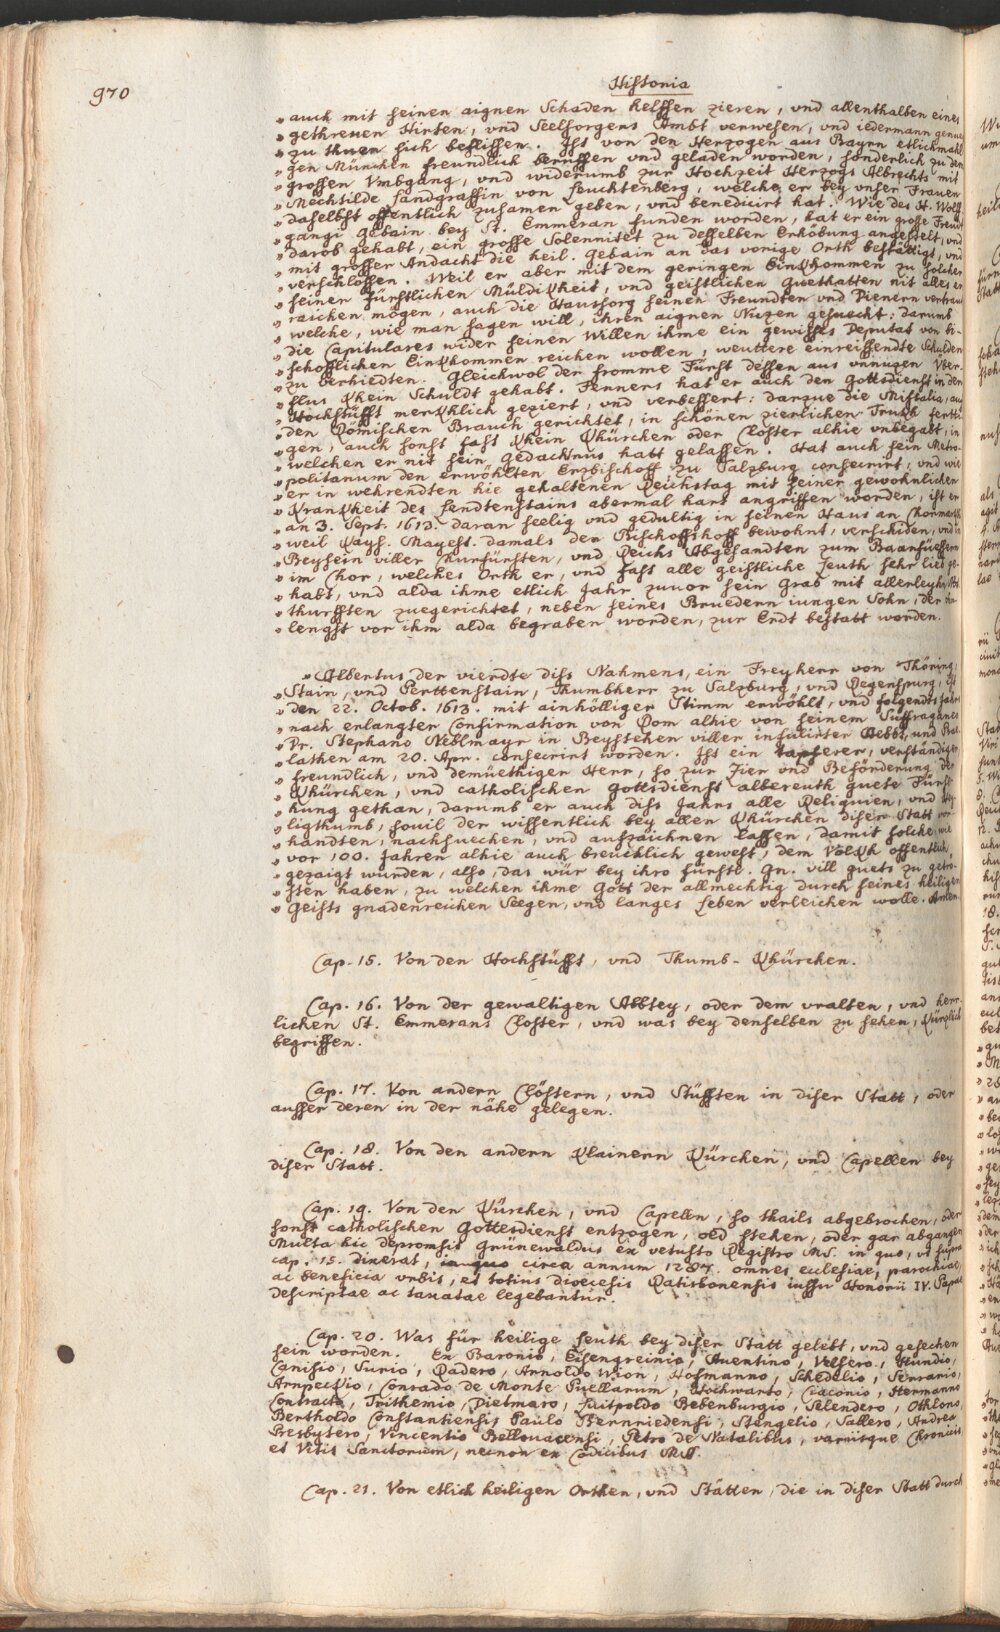 970
Historia
» auch mit seinen aignen Schaden helffen zieren, vnd allenthalben eines
» gethreuen Hirten, vnd Seelsorgers Ambt verwesen, vnd iedermann genueg
» zu thuen sich beflissen. Ist von den Herzogen aus Bayrn etlichmahl
gen München freundlich beruffen vnd geladen worden, sonderlich zu den
» grossen Vmbgang, vnd widerumb zur Hochzeit Herzogs Albrechts mit
» Mechtilde Landgräffin von Leuchtenberg, welche er bey vnser Frauen
» daselbst offentlich zusamen geben, vnd benedicirt hat. Wie des H. Wolff
» gangi gebain bey St. Emmeran funden worden, hat er ein grosse Freud
» darob gehabt, ein grosse Solennitet zu desselben Erhöbung angestelt, vnd
» mit grosser Andacht die heil. Gebain an das vorige Orth bestättigt, vnd
» verschlossen. Weil er aber mit dem geringen Einkhommen zu solcher
» seiner Fürstlichen Müldikheit, vnd geistlichen guetthatten nit alles er
» raichen mögen, auch die Haussorg seinen Freundten vnd Dienern vertraut
» welche, wie man sagen will, ihren aignen Nuzen gesuecht: darumb
» die Capitulares wider seinen Willen ihme ein gewisses Deputat von bi-
» schofflichen Einkhommen reichen wollen, weuttere einreissendte Schulden
» zu verhiedten. Gleichwol der fromme Fürst dessen aus vnnuzen Vber-
» flus khein Schuldt gehabt. Ferners hat er auch den Gottsdienst in den
» Hochstüfft merkhlich geziert, vnd verbessert: darzue die Missalia, auf
» den Römischen Brauch gerichtet, in schönen zierlichen Trukh fertti-
» gen, auch sonst fast khein Khürchen oder Closter alhie vnbegabt, in
» welchen er nit sein gedächtnus habt gelassen. Hat auch sein Metro-
» politanum den erwöhlten Erzbischoff zu Salzburg consecrirt, vnd wie
» er in wehrendten hie gehaltenen Reichstag mit seiner gewohnlichen
» Krankheit des Lendtenstains abermal hart angriffen worden, ist er
» an 3. Sept. 1613. daran seelig vnd gedultig in seinen Haus an Kornmarkh
» weil Kays. Mayest. damals den Bischoffshoff bewohnt, verschiden, vnd in
» Beysein viller Churfürsten, vnd Reichs Abgesandten zum Baarfüessern
» im Chor, welches Orth er, vnd fast alle geistliche Leuth sehr lieb ge-
» habt, vnd alda ihme etlich Jahr zuuor sein Grab mit allerleyh Not
» thurfften zuegerichtet, neben seines Bruedern iungen Sohn, der
» lengst vor ihm alda begraben worden, zur Erdt bestatt worden.
» Albertus der vierdte diss Nahmens, ein Freyherr von Thöring,
» Stain, vnd Perttenstain, Thumbherr zu Salzburg, vnd Regenspurg, ist
» den 22. Octob. 1613. mit ainhölliger Stimm erwöhlt, vnd folgendts Jahr
» nach erlangter Confirmation von Rom alhie von seinem Suffraganeo
» Dr. Stephano Neblmayr in Beystehen viller infulirter Aebbt, vnd Prae
» lathen am 20. Apr. consecrirt worden. Ist ein tapferer, verständiger
» freundlich, vnd demüethiger Herr, so zur Zier vnd Beförderung der
» Khürchen, vnd catholischen Gottsdienst albereuth guete Fürse
» hung gethan, darumb er auch diss Jahrs alle Reliquien, vnd Hey
» ligthumb, souil der wissentlich bey allen Khürchen diser Statt vor-
» handten, nachsuechen, vnd aufzaichnen lassen, damit solche, wie
» vor 100. Jahren alhie auch breuchlich gewest, dem Volckh offentlich,
» gezaigt wurden, also, das wür bey ihro fürstl. Gn. vill guets zu getrö-
» sten haben, zu welchen ihme Gott der allmechtig durch seines heiligen
» Geists gnadenreichen Seegen, vnd langes Leben verleichen wolle. Amen.
Cap. 15. Von den Hochstüfft, vnd Thumb-Khürchen.
Cap. 16. Von der gewaltigen Abbtey, oder dem vralten, vnd herr-
lichen St. Emmerans Closter, vnd was bey denselben zu sehen, Kürzlich
begriffen.
Cap. 17. Von andern Clöstern, vnd Stüfften in diser Statt, oder
ausser deren in der nähe gelegen.
Cap. 18. Von den andern Klainern Kürchen, vnd Capellen bey
diser Statt.
Cap. 19. Von den Kürchen, vnd Capelln, so thails abgebrochen, oder
sonst catholischen Gottesdienst entzogen, oed stehen, oder gar abgangen
Multa hic depromsit Grünewaldus ex vetusto Registro MS. in quo, vt supra
cap. 15. dixerat, in quo circa annum 1287. omnes ecclesiae, parochiae,
ac beneficia vrbis, et totius dioecesis Ratisbonensis iussu Honorii IV. Papae
descriptae ac taxatae legebantur.
Cap. 20. Was für heilige Leuth bey diser Statt gelebt, vnd gesechen
sein worden. Ex Baronio, Eisengreinio, Auentino, Velsero, Hundio,
Canisio, Surio, Radero, Arnoldo Wion, Hofmanno, Schedelio, Serrario,
Arnpeckio, Conrado de Monte Puellarum, Hochwarto, Ciaconio, Hermanno
Contracto, Trithemio, Dietmaro, Luitpoldo Bebenburgio, Selendero, Othlono,
Bertholdo Constantiensi, Paulo Bernriedensi, Stengelio, Sallero, Andrea
Presbytero, Vincentio Bellouacensi, Petro de Natalibus, variisque Chronicis,
et Vitis Sanctorum, necnon ex Codicibus MSS.
Cap. 21. Von etlich heiligen Orthen, vnd Stätten, die in diser Statt durch